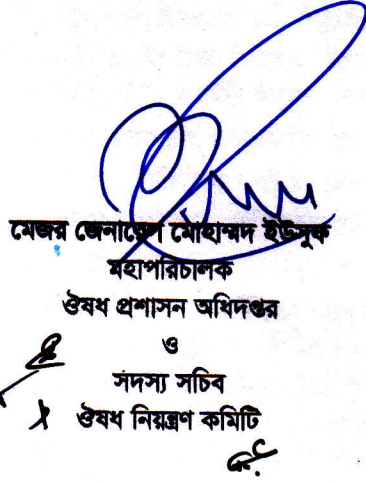 মেজর জেনারেল মোহাম্মদ ইউসুফ
মহাপরিচালক
ঔষধ প্রশাসন অধিদপ্তর
ও
সদস্য সচিব
ঔষধ নিয়ন্ত্রণ কমিটি